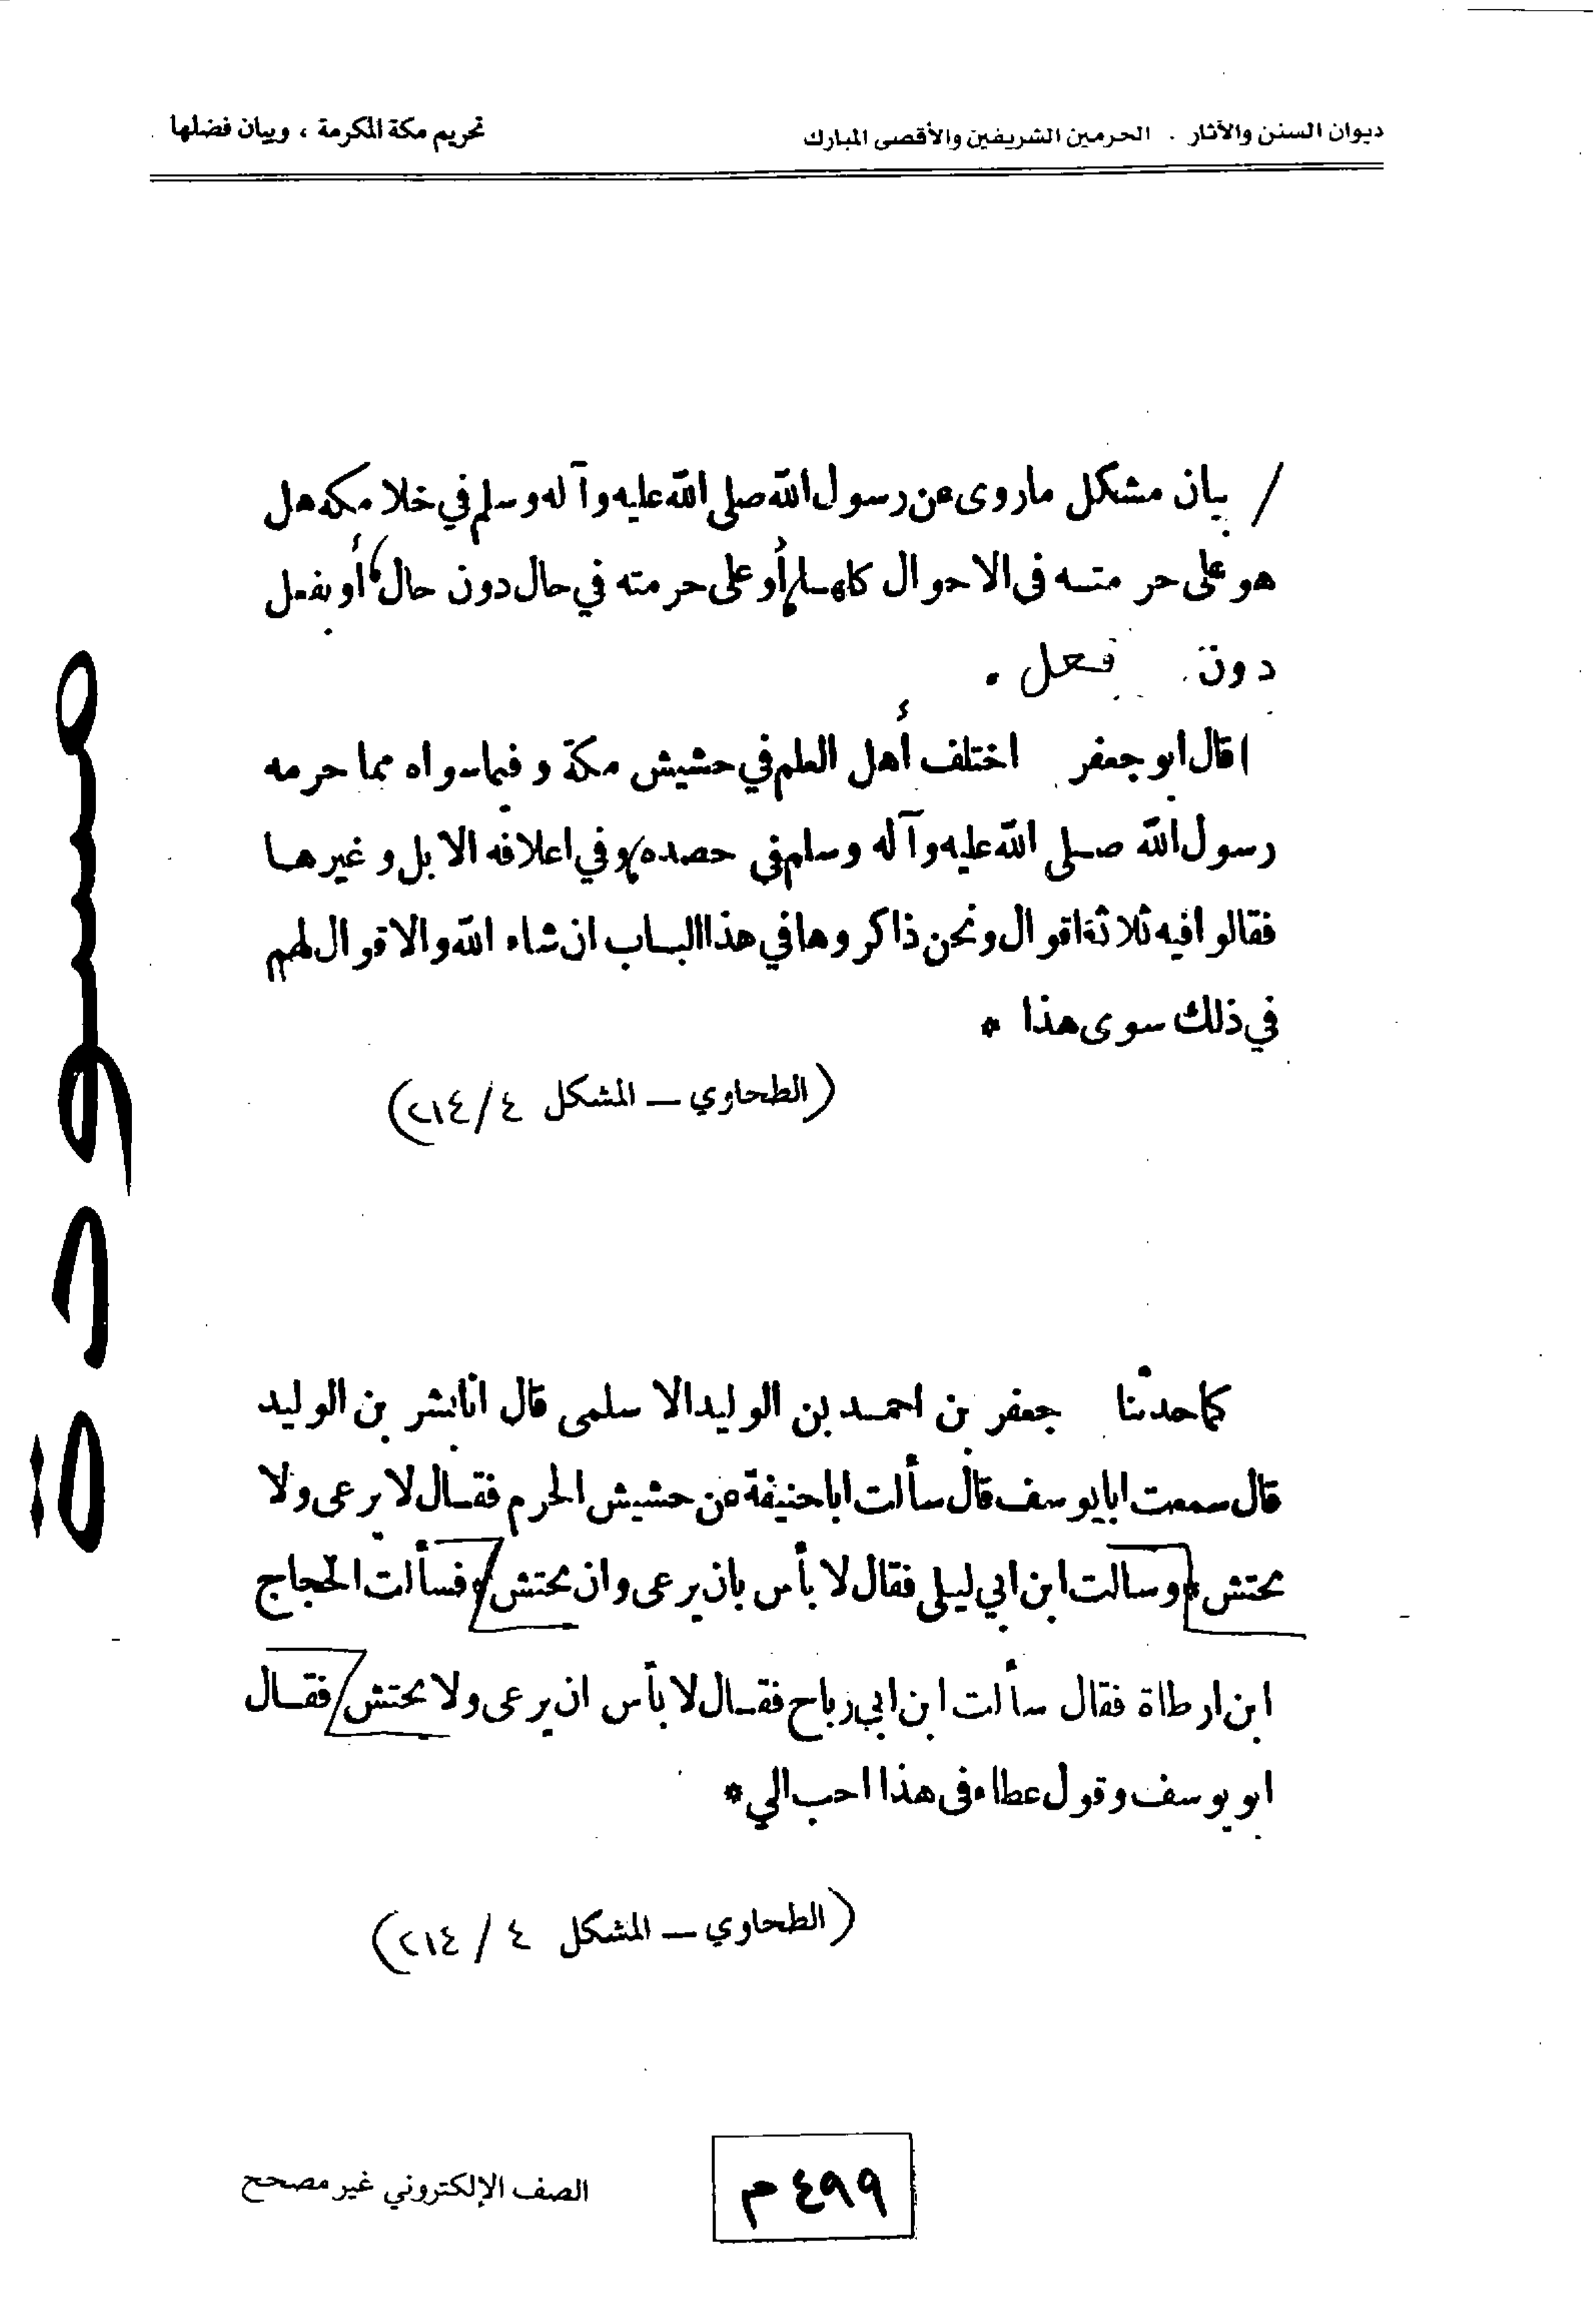 ديوان السنن والآثار . الحرمين الشريفين والأقصى المبارك
تحريم مكة المكرمة ، وبيان فضلها
/ بيان مشكل ماروى عن رسول الله صلى الله عليه وآله وسلم في خلا مكه هل
هو على حرمته فى الاحوال كلها أو على حرمته في حال دون حال، أو بفعل
دون فعل .
قال ابو جعفر اختلف أهل العلم في حشيش مكة وفيما سواه مما حرمه
رسول الله صلى الله عليه وآله وسلم فى حصده وفي اعلافه الابل وغيرها
فقالوا فيه ثلاثة اقوال ونحن ذاكروها في هذا الباب ان شاء الله والاقوال لهم
في ذلك سوى هذا *
(الطحاوي – المشكل ٤/٢١٤)
كما حدثنا جعفر بن احمد بن الوليد الاسلمى قال انا بشر بن الوليد
قال سمعت ابا يوسف قال سألت ابا حنيفة عن حشيش الحرم فقال لا يرعى ولا
يحتش وسالت ابن ابي ليلى فقال لا بأس بان يرعى وان يحتش فسألت الحجاج
ابن ارطاة فقال سألت ابن ابي رباح فقال لا بأس ان يرعى ولا يحتش فقال
ابو يوسف وقول عطاء فى هذا احب الي *
(الطحاوي – المشكل ٤ / ٢١٤)
٤٩٩ م
الصف الإلكتروني غير مصحح